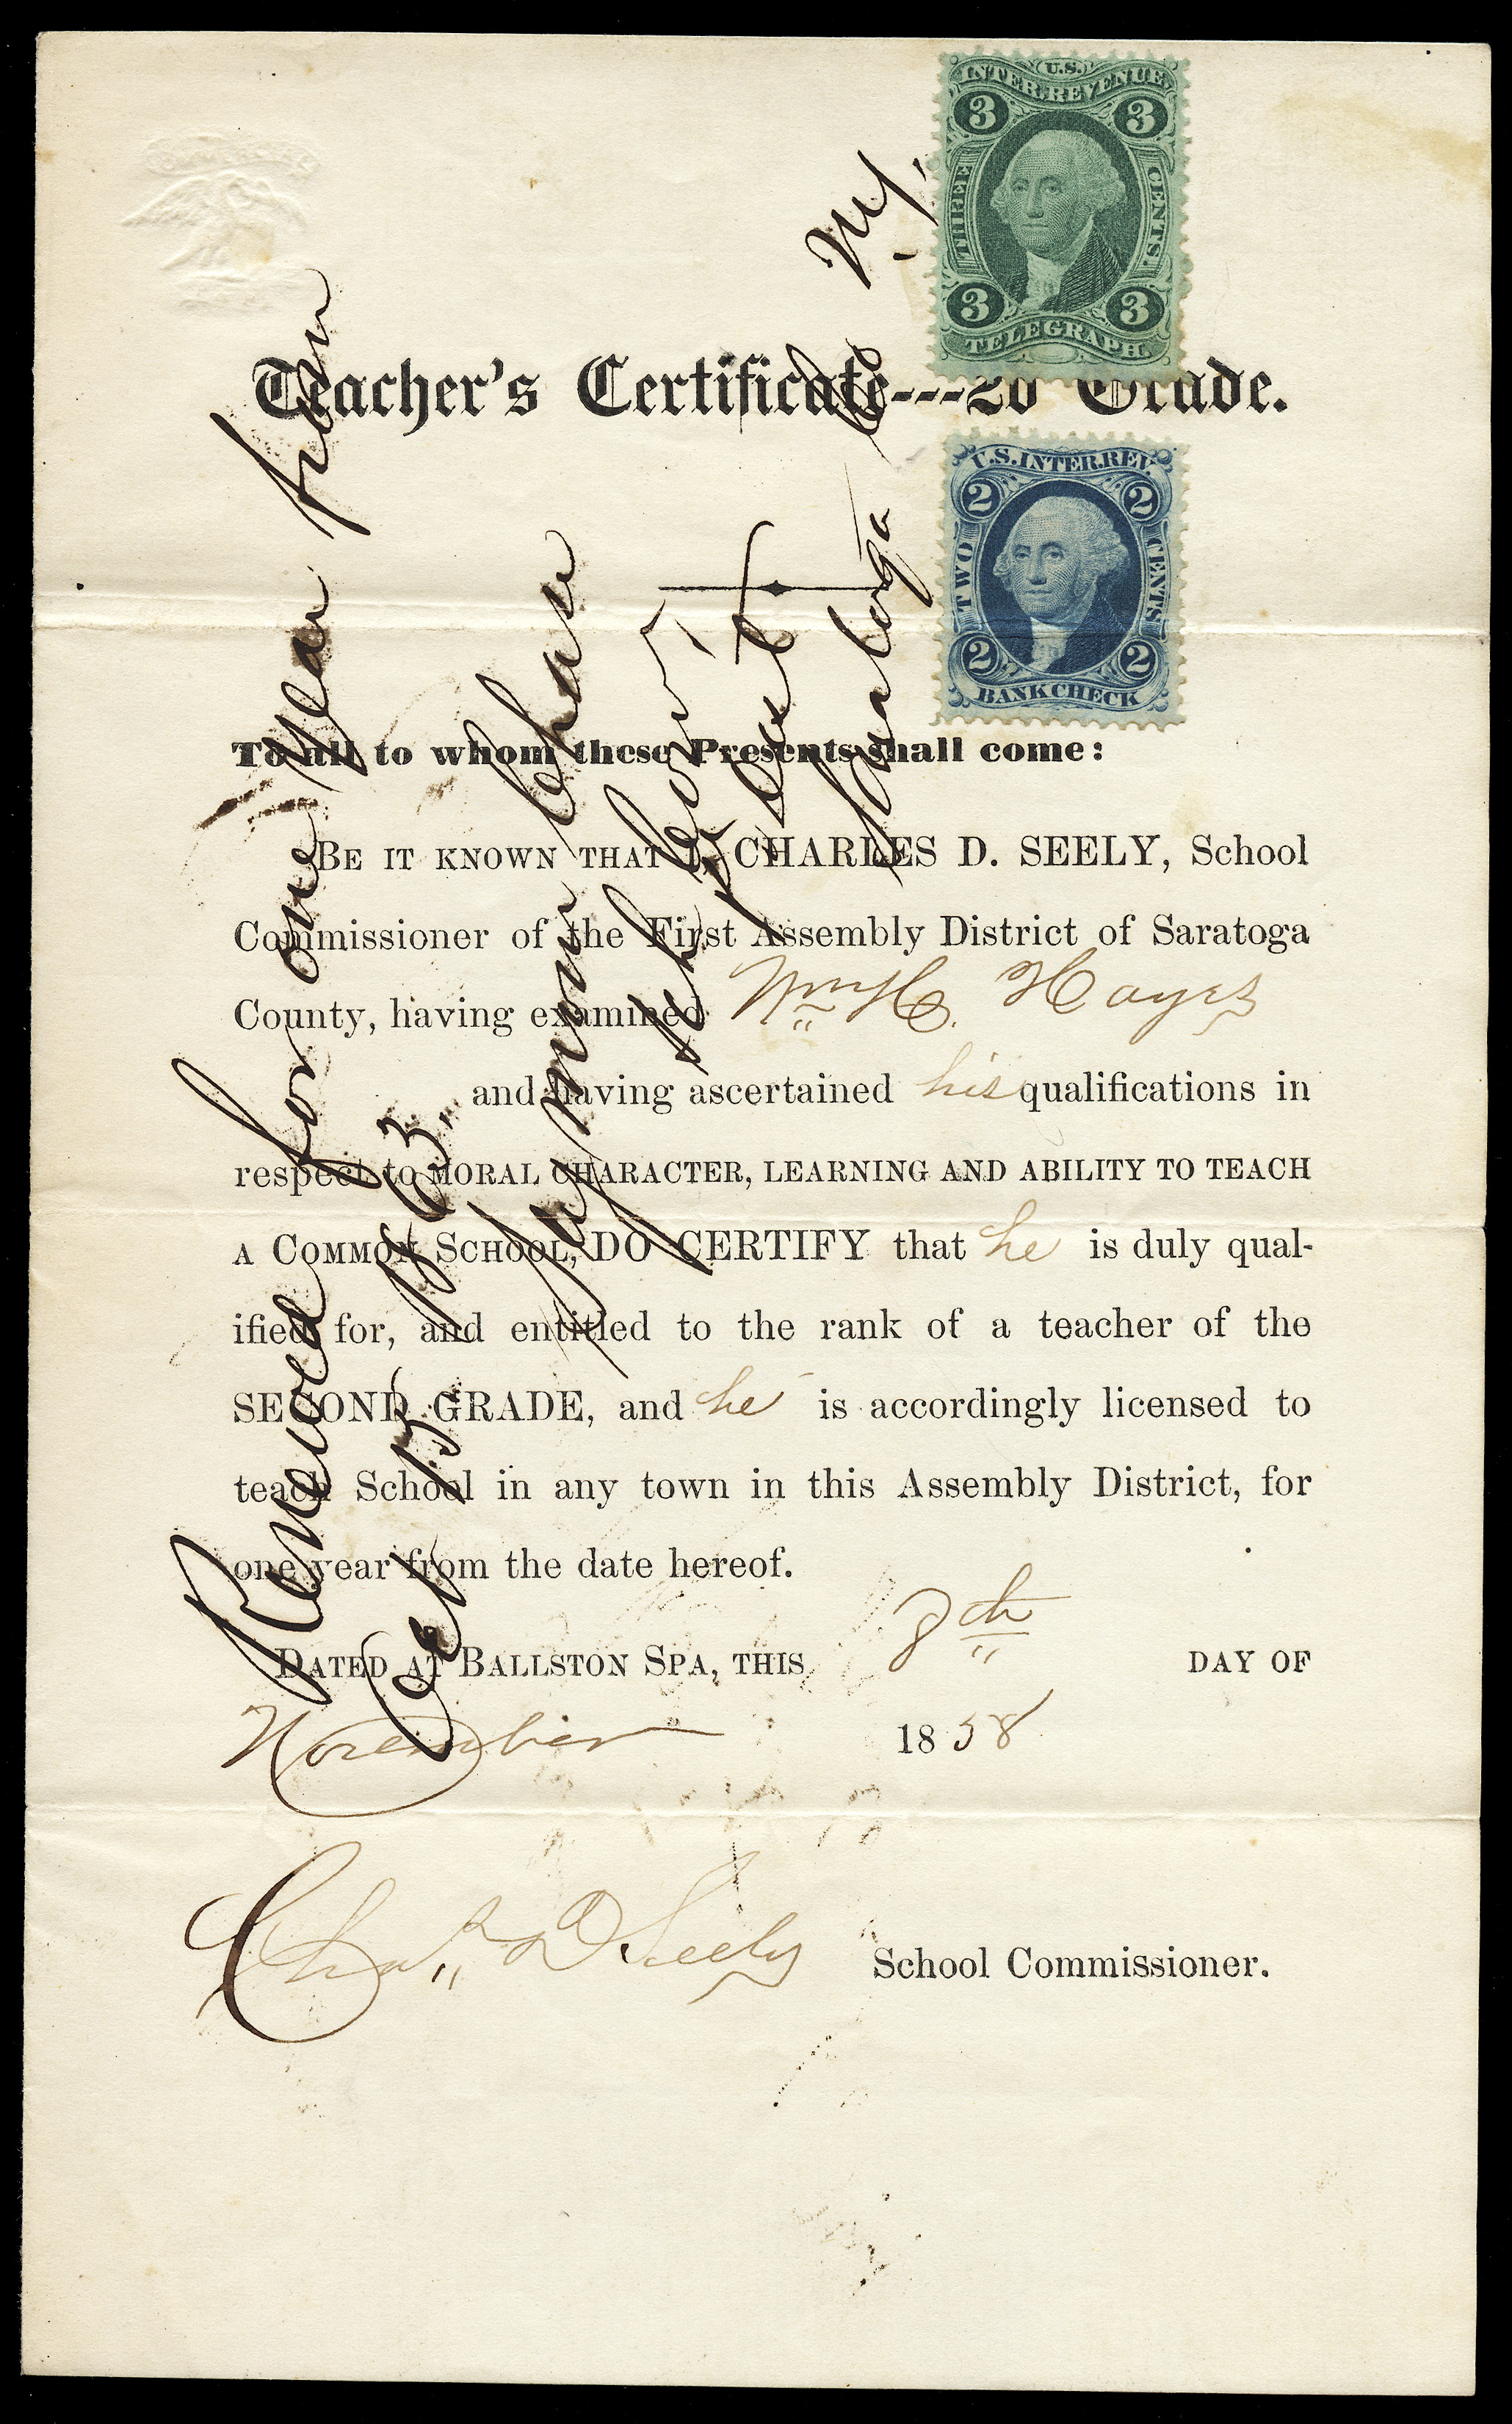 U.S.
INTER. REVENUE
3 3
THREE CENTS.
3 3
TELEGRAPH.
Teacher's Certificate---2d Grade.
U.S. INTER. REV.
2 2
TWO CENTS
2 2
BANK CHECK
To all to whom these Presents shall come:
BE IT KNOWN THAT I, CHARLES D. SEELY, School
Commissioner of the First Assembly District of Saratoga
County, having examined Wm H. Hayes
and having ascertained his qualifications in
respect to MORAL CHARACTER, LEARNING AND ABILITY TO TEACH
A COMMON SCHOOL, DO CERTIFY that he is duly qual-
ified for, and entitled to the rank of a teacher of the
SECOND GRADE, and he is accordingly licensed to
teach School in any town in this Assembly District, for
one year from the date hereof.
DATED AT BALLSTON SPA, THIS 8th DAY OF
November 1858
Chas. D Seely School Commissioner.
Renewed for one year from
Oct 13, 1863.
Sch. Com.
1st Dist
Saratoga Co N.Y.